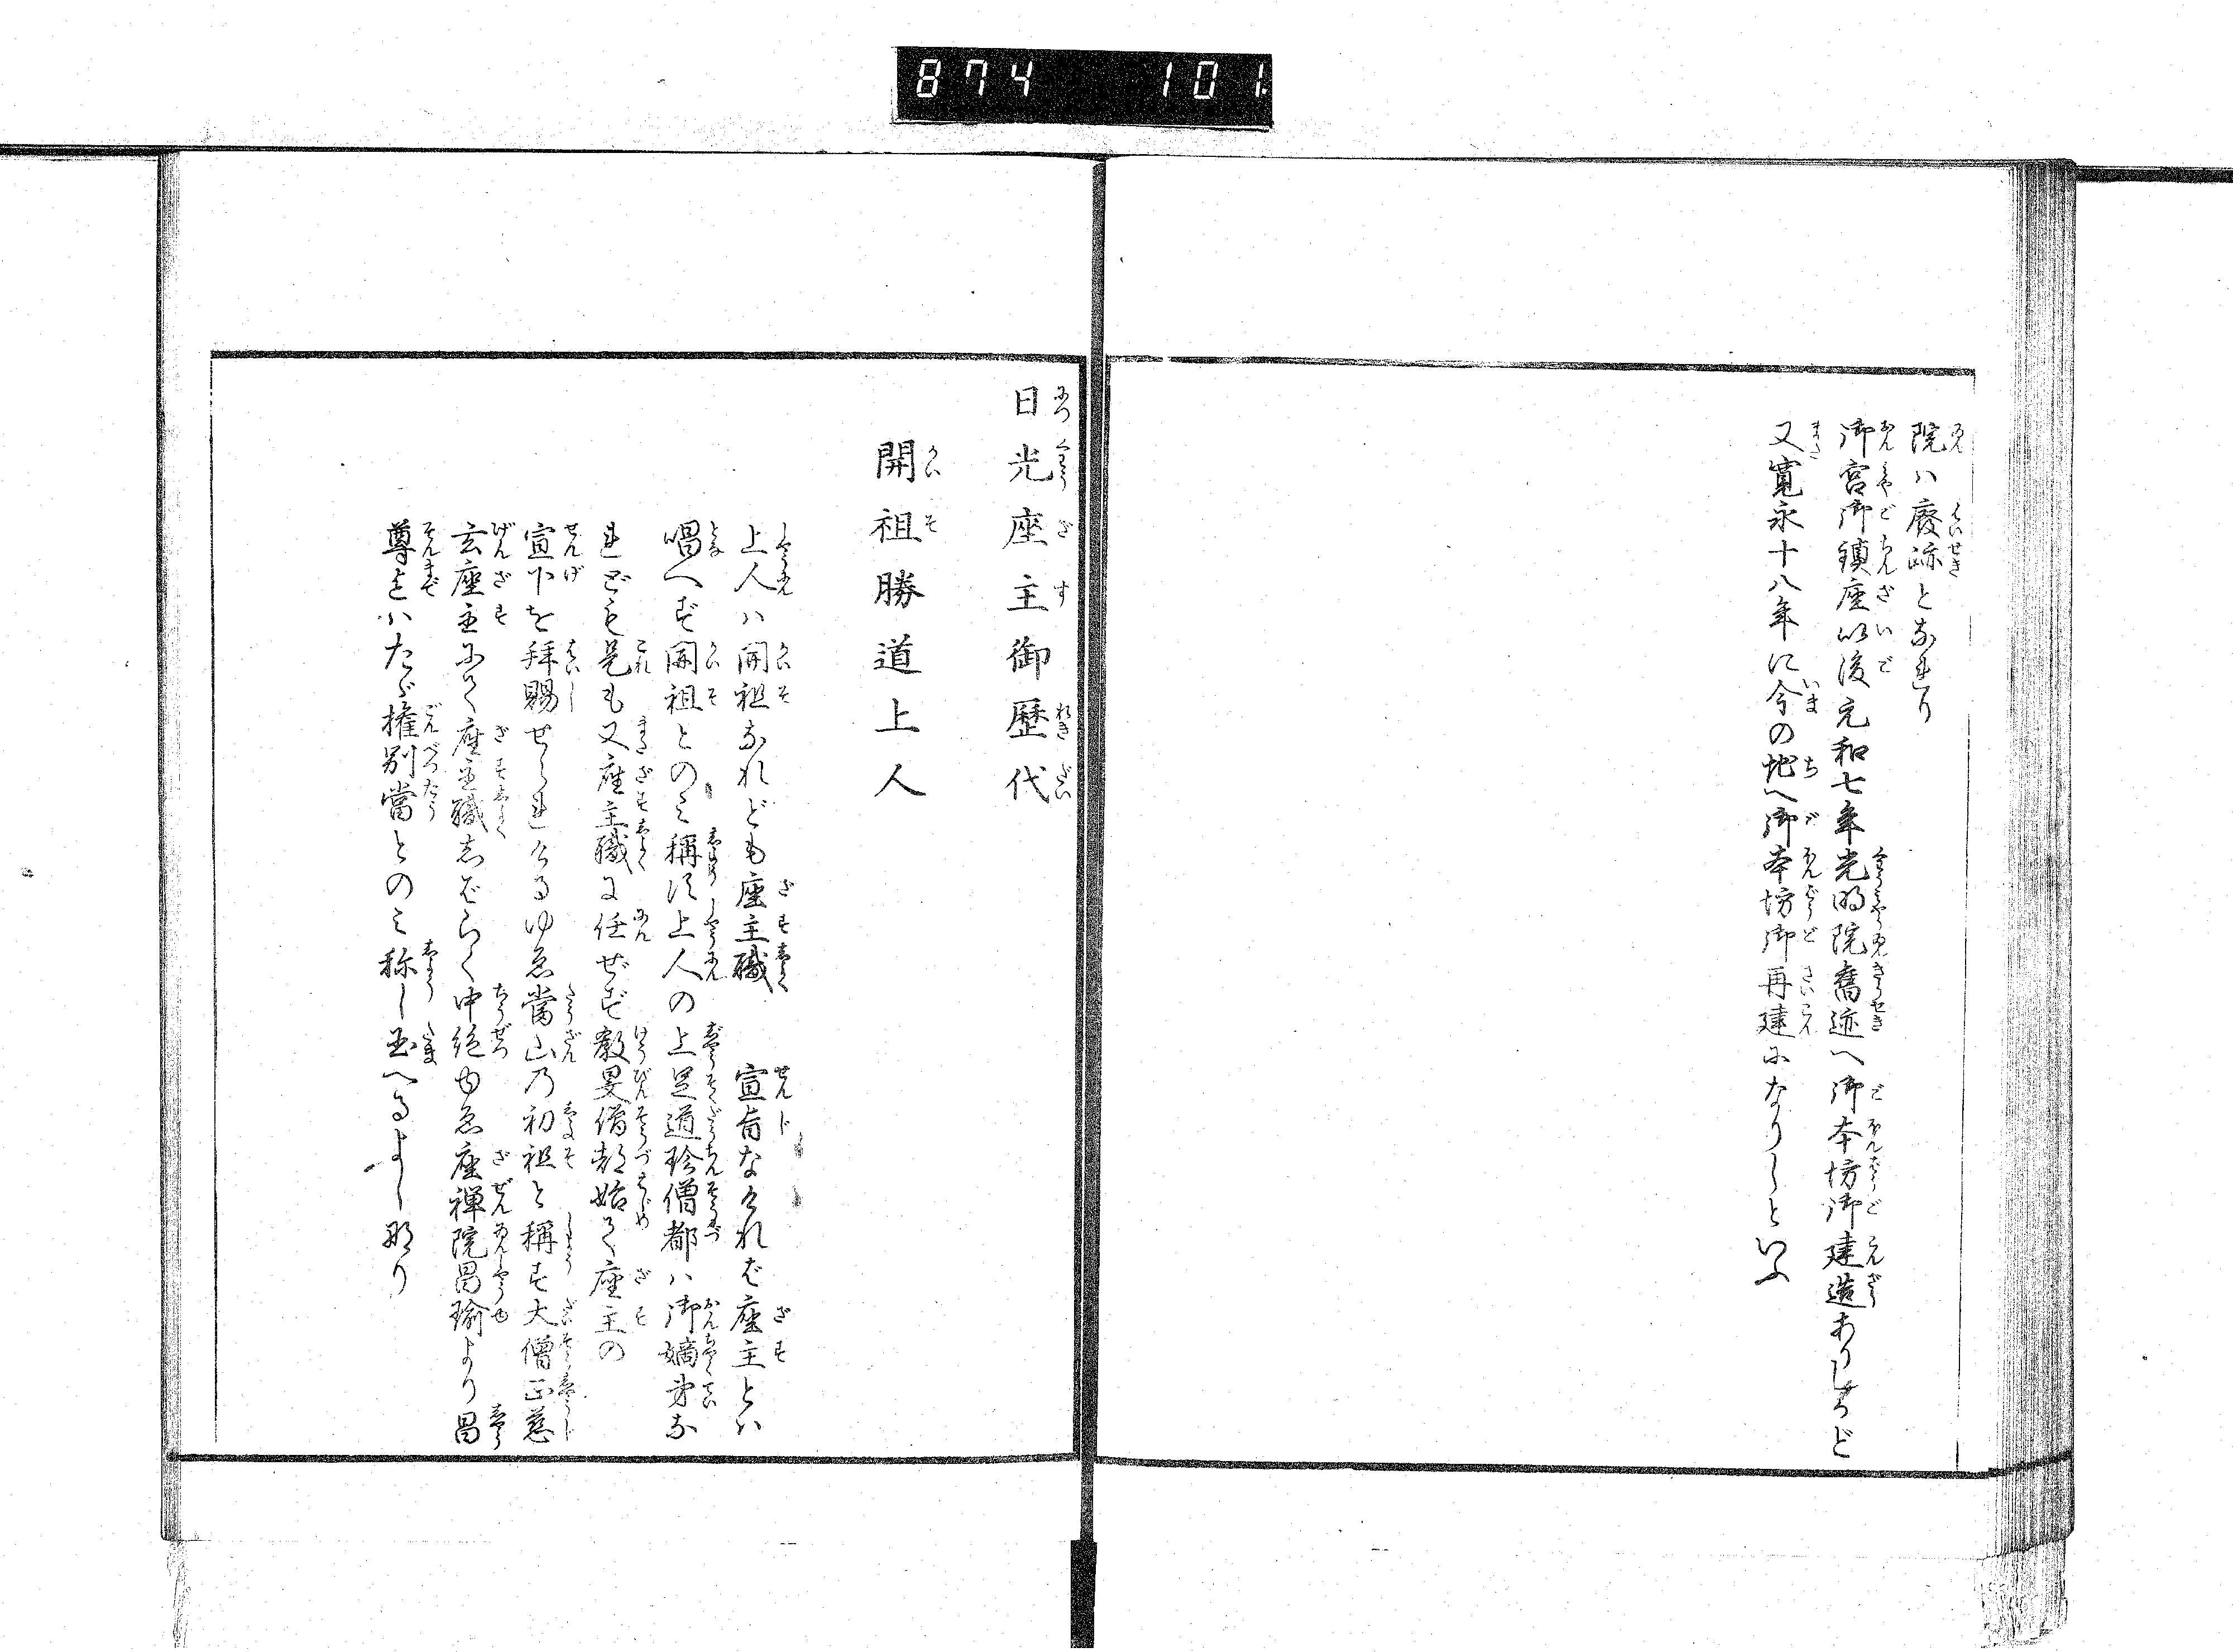 874 101
院ハ廢跡となれり
御宮御鎮座以後元和七年光明院舊迹へ御本坊御建造ありしかど
又寛永十八年に今の地へ御本坊御再建になりしといふ
日光座主御歴代
開祖勝道上人
上人ハ開祖なれども座主職 宣旨なければ座主とハ
唱へず開祖とのミ稱す上人の上足道珍僧都ハ御嫡弟な
れども是も又座主職に任ぜず教旻僧都始て座主の
宣下を拝賜せられけるゆゑ當山乃初祖と稱す大僧正慈
玄座主にて座主職しばらく中絶ゆゑ座禅院昌瑜より昌
尊までハたゞ権別當とのミ称し玉へるよし那り